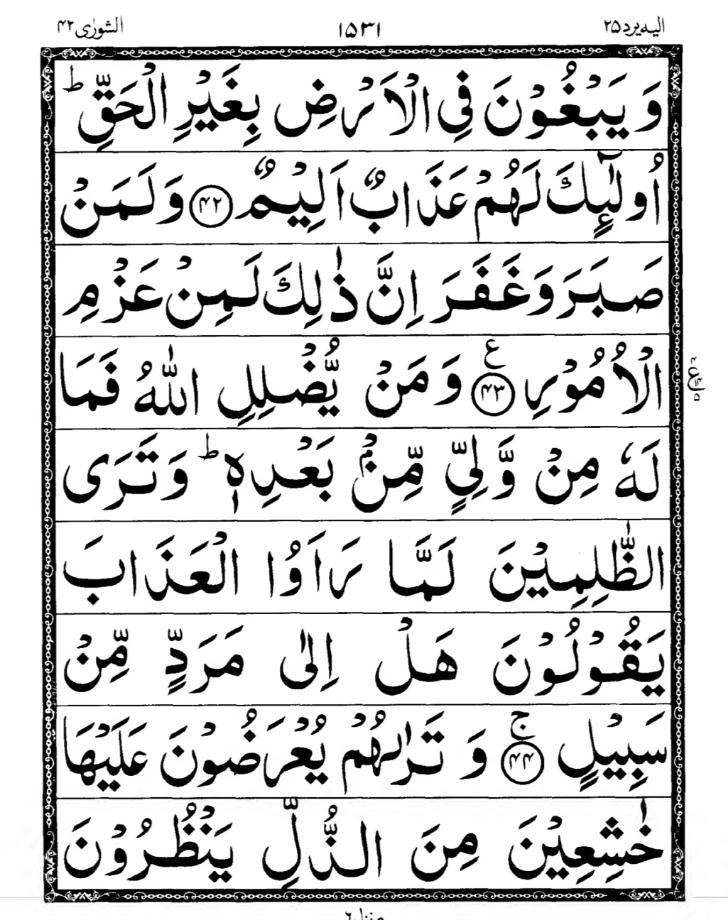 اليه يرد ٢٥ ١٥٣١ الشورٰى ٤٢
وَ يَبْغُوْنَ فِى الْاَرْضِ بِغَيْرِ الْحَقِّ ؕ
اُولٰٓئِكَ لَهُمْ عَذَابٌ اَلِيْمٌ ۝۴۲ وَ لَمَنْ
صَبَرَ وَ غَفَرَ اِنَّ ذٰلِكَ لَمِنْ عَزْمِ
الْاُمُوْرِ ۝۴۳ع وَ مَنْ يُّضْلِلِ اللّٰهُ فَمَا
لَهٗ مِنْ وَّلِيٍّ مِّنْۢ بَعْدِهٖ ؕ وَ تَرَى
الظّٰلِمِيْنَ لَمَّا رَاَوُا الْعَذَابَ
يَقُوْلُوْنَ هَلْ اِلٰى مَرَدٍّ مِّنْ
سَبِيْلٍ ۝۴۴ۚ وَ تَرٰىهُمْ يُعْرَضُوْنَ عَلَيْهَا
خٰشِعِيْنَ مِنَ الذُّلِّ يَنْظُرُوْنَ
منزل ٦